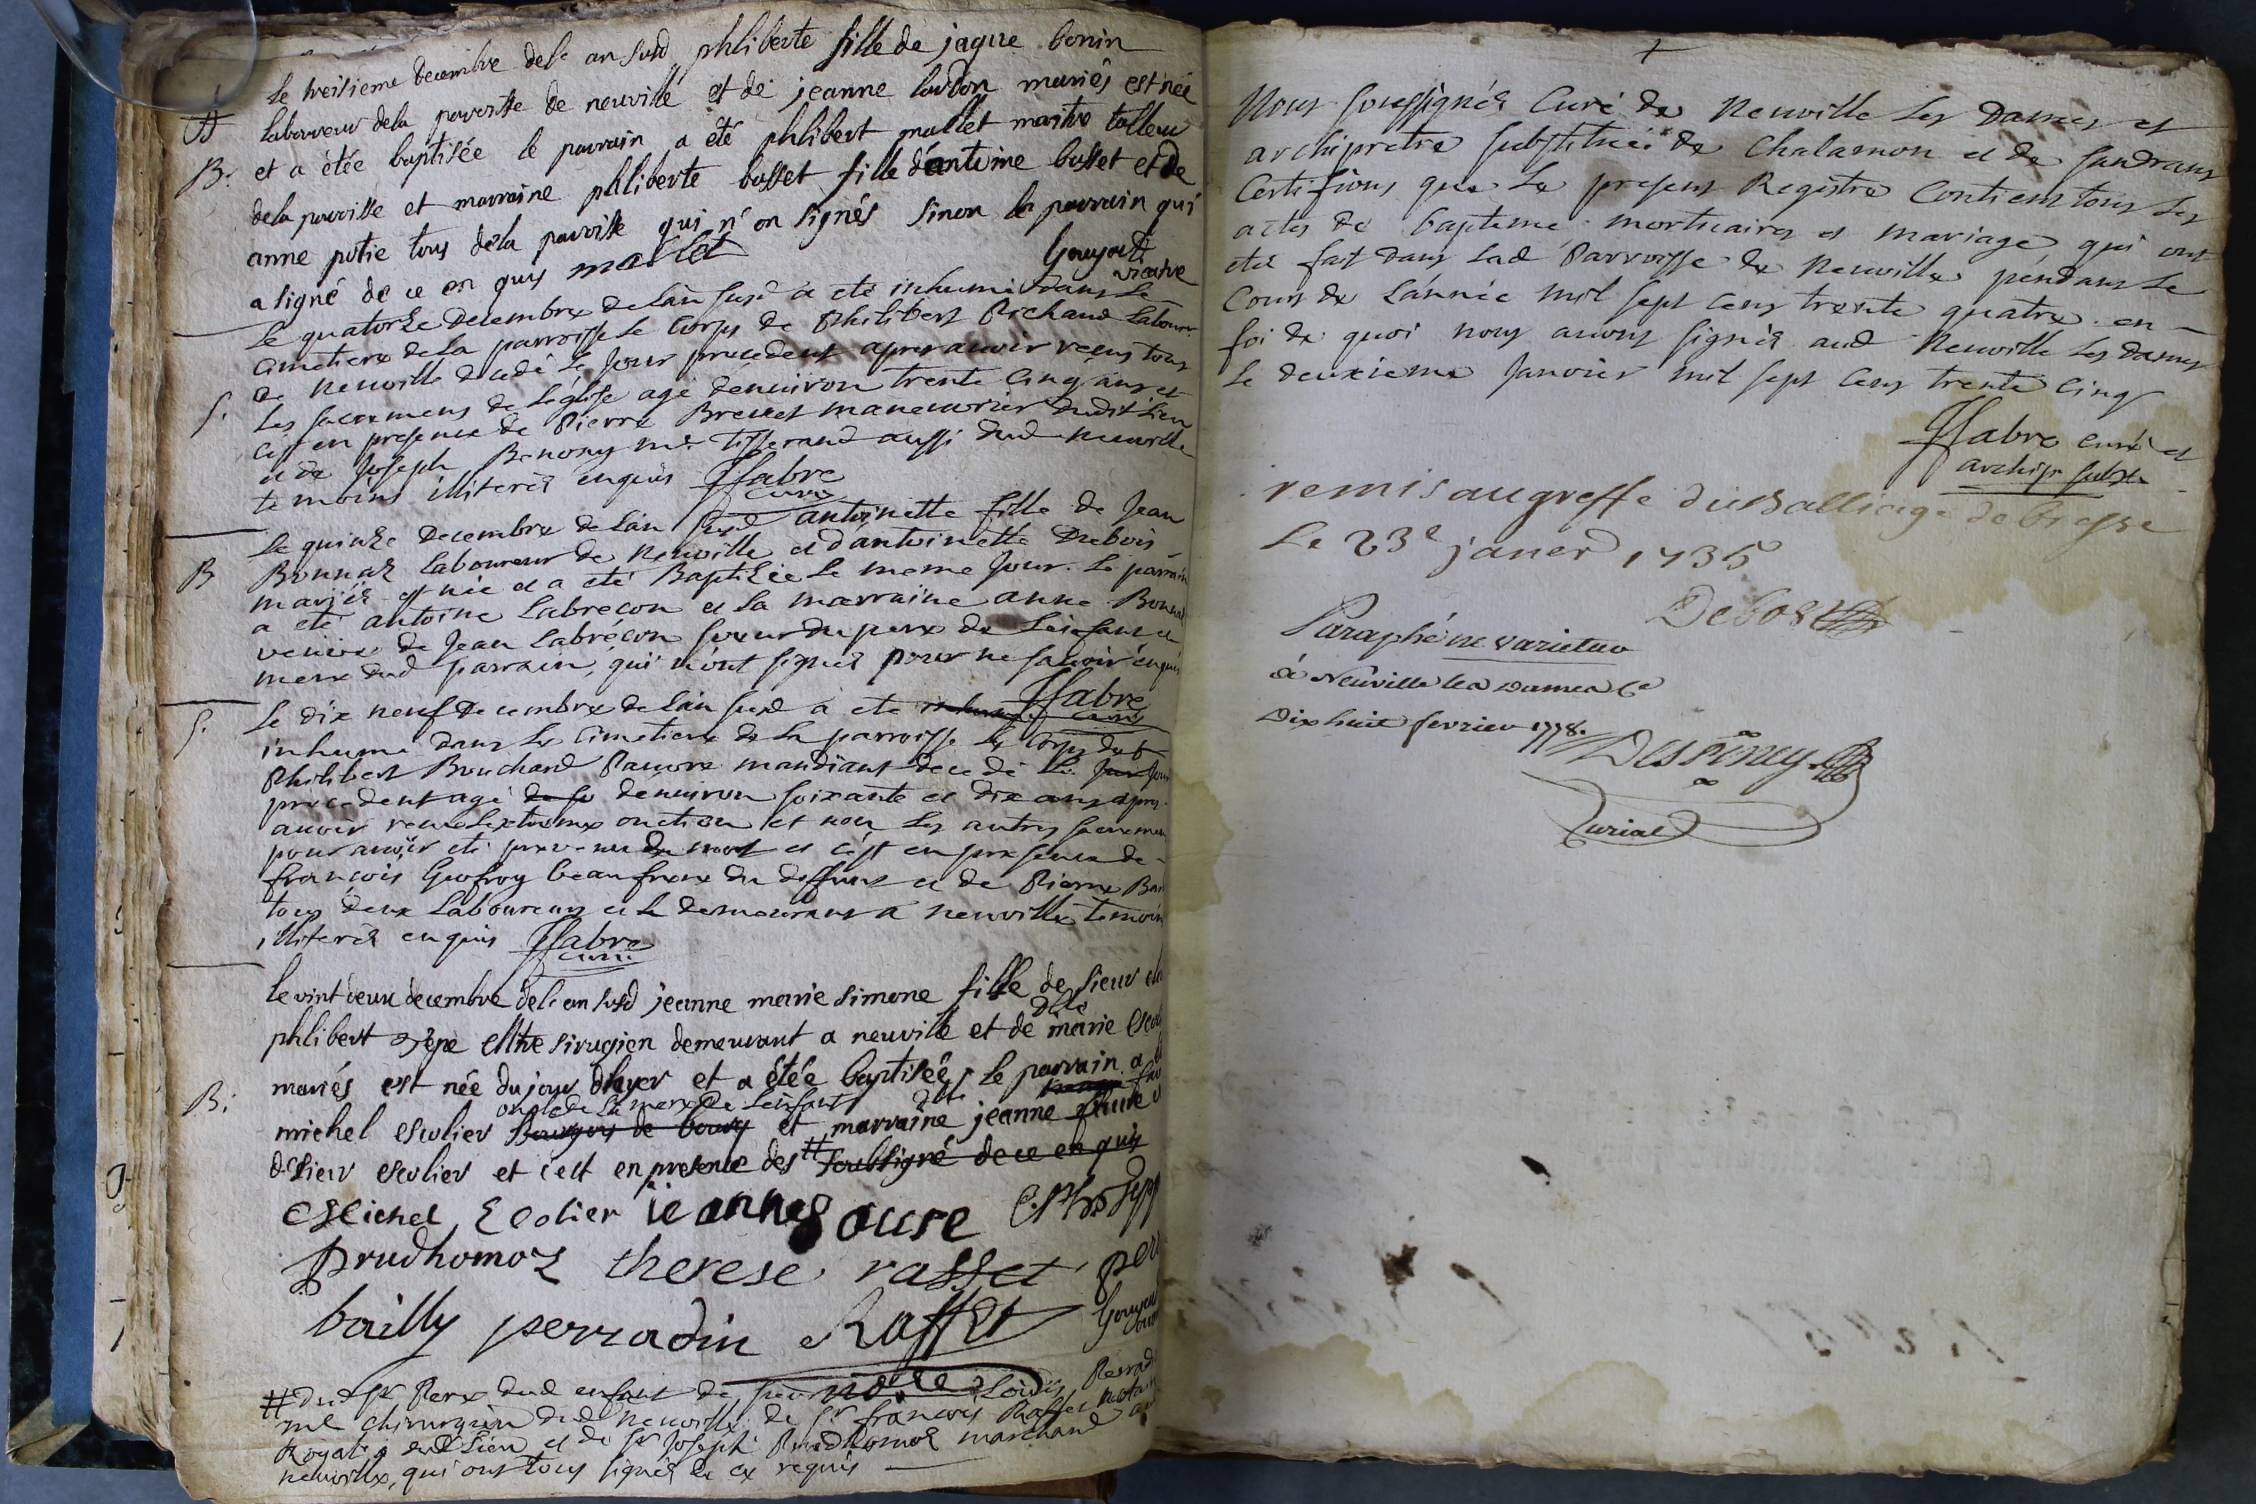 le treisieme decembre de l'an susd philiberte fille de jaque bonin
laboureur de la paroisse de neuville et de jeanne loudon mariés est née
B. et a étée baptisée le parrain a été phlibert mallet maitre talleur
de la paroisse et marraine phliberte basset fille d'antoine basset et de
anne putie tous de la paroisse qui n'on signés sinon le parrain qui
a signé de ce en quis mallet Goujout vicaire
Le quatorze Decembre de L'an susd a eté inhumé dans Le
Cimetiere de La parroisse Le Corps de Philibert Richaud Labour
de Neuville decedé Le Jour precedent apres avoir reçus tous
S. Les sacremens de L'église agé d'environ trente Cinq ans, et
c'est en presence de Pierre Brevet maneuvrier dudit Lieu
et de Joseph Benony me Tisserand aussi dud Neuville
temoins illiterés enquis JFabre
curé
Le quinze Decembre de L'an susd antoinette fille de Jean
B Bonnaz Laboureur de Neuville et d'antoinette Dubois
mariés est née et a eté Baptizée Le meme Jour. Le parrain
a eté antoine Labrecon et La marraine anne Bonnaz
veuve de Jean Labrécon soeur du pere de L'enfant et
mere dud parrain, qui n'ont signés pour ne savoir enquis
JFabre
curé
S. Le dix neuf Decembre de L'an susd a eté
inhumé dans Le Cimetiere de La parroisse Le Corps de
Philibert Bouchard Pauvre mandiant decedé Le Jour
precedent agé d'environ soixante et dix ans apres
avoir receu L'extreme onction et non Les autres sacremens
pour avoir eté prevenu de mort et c'est en presence de
françois Geofroy beaufrere du deffunt et de Pierre
tous deux Laboureurs et demeurans a Neuville temoins
illiterés enquis JFabre
curé
le vint deux decembre de l'an susd jeanne marie simone fille de sieur
phlibert sirugien demeurant a neuville et de dlle marie
B: mariés est née du jour d'hyer et a étée baptisée, le parrain a
oncle de La mere de L'enfant dlle
michel escolier Bourgois de bourg et marraine jeanne
d. sieur escolier et c'est en presence des # soubsigné de ce en quis
Michel Ecolier ieanne faure
prudhomoz therese rasset
bailly perradin Raffet
# dud sr Pere dud enfant de sieur Louis
me chirurgien dud Neuville de sr françois Raffet
Royal aud Lieu et de sr Joseph Prudhomoz marchand
neuville, qui ont tous signés de ce requis
Nous soussignés Curé de Neuville Les Dames et
archipretre substitué de Chalamon et de Sandrans
Certifions que Le present Registre Contient tous Les
actes de bapteme mortuaires et mariage, qui ont
eté fait dans Lad Parroisse de Neuville pendant Le
Cours de L'année mil sept cens trente quatre. en
foi de quoi nous avons signés aud Neuville Les dames
Le deuxieme Janvier mil sept cens trente Cinq
JFabre curé et
archipr subst.
remis au greffe du Balliage de bresse
Le 23e janer 1735
Debost
Paraphé ne varietur
à Neuville les Dames Ce
Dix huit fevrier 1778.
Despiney
Curial